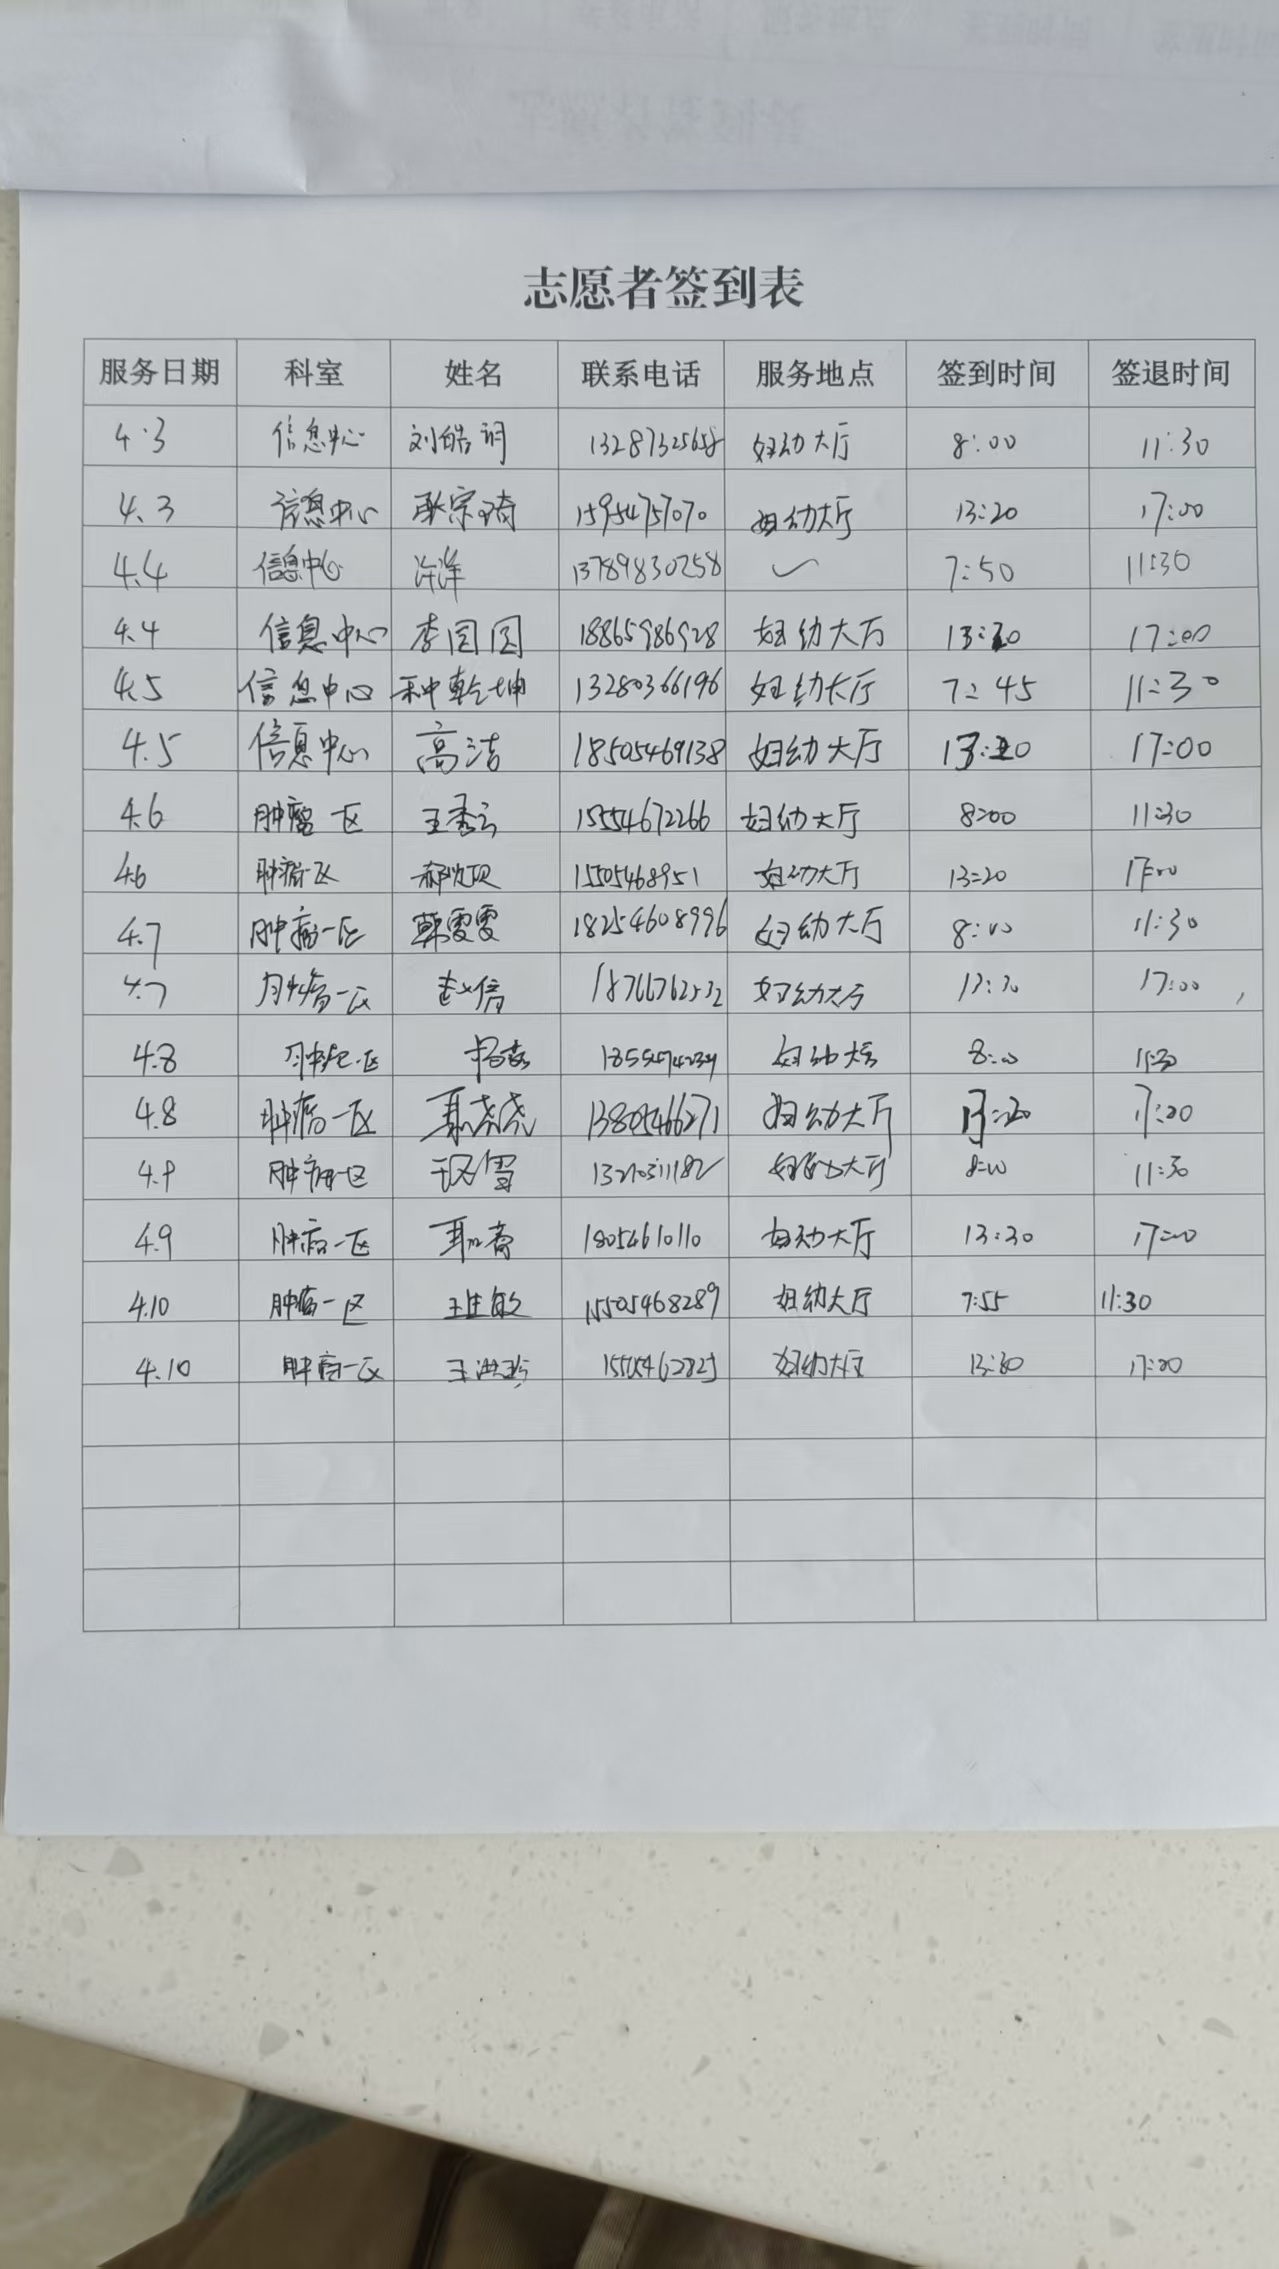 志愿者签到表
服务日期 科室 姓名 联系电话 服务地点 签到时间 签退时间
4.3 信息中心 刘皓 妇幼大厅 8:00 11:30
4.3 信息中心 耿宗琦 15954757070 妇幼大厅 13:20 17:00
4.4 信息中心 许洋 13789830258 7:50 11:30
4.4 信息中心 李园园 18865986928 妇幼大厅 17:00
4.5 信息中心 种乾坤 13280366196 妇幼大厅 7:45 11:30
4.5 信息中心 高洁 18505469138 妇幼大厅 17:00
4.6 肿瘤一区 王秀云 15554672266 妇幼大厅 8:00 11:30
4.6 肿瘤一区 15505468951 妇幼大厅 13:20 17:00
4.7 肿瘤一区 韩雯雯 18254608996 妇幼大厅 8:00 11:30
4.7 肿瘤一区 赵倩 妇幼大厅 17:00
4.8 肿瘤一区 妇幼大厅 8:00 11:30
4.8 肿瘤一区 13805466271 妇幼大厅 17:00
4.9 肿瘤一区 妇幼大厅 8:00 11:30
4.9 肿瘤一区 妇幼大厅 13:30 17:00
4.10 肿瘤一区 15505468289 妇幼大厅 7:55 11:30
4.10 肿瘤一区 王洪珍 妇幼大厅 13:30 17:00